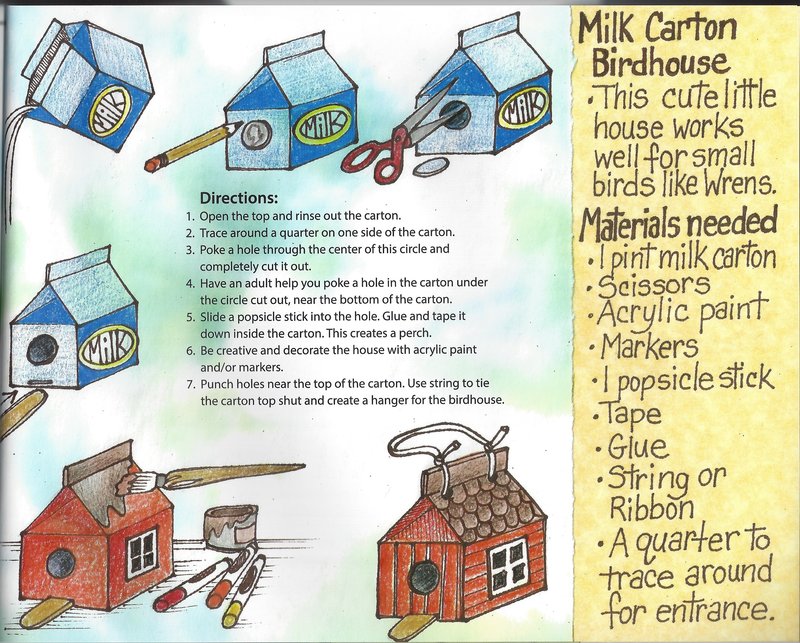 Milk
Milk
Milk
Directions:
1. Open the top and rinse out the carton.
2. Trace around a quarter on one side of the carton.
3. Poke a hole through the center of this circle and
completely cut it out.
4. Have an adult help you poke a hole in the carton under
the circle cut out, near the bottom of the carton.
5. Slide a popsicle stick into the hole. Glue and tape it
down inside the carton. This creates a perch.
6. Be creative and decorate the house with acrylic paint
and/or markers.
7. Punch holes near the top of the carton. Use string to tie
the carton top shut and create a hanger for the birdhouse.
Milk
Milk Carton
Birdhouse
• This cute little
house works
well for small
birds like Wrens.
Materials needed
• 1 pint milk carton
• Scissors
• Acrylic paint
• Markers
• 1 popsicle stick
• Tape
• Glue
• String or
Ribbon
• A quarter to
trace around
for entrance.